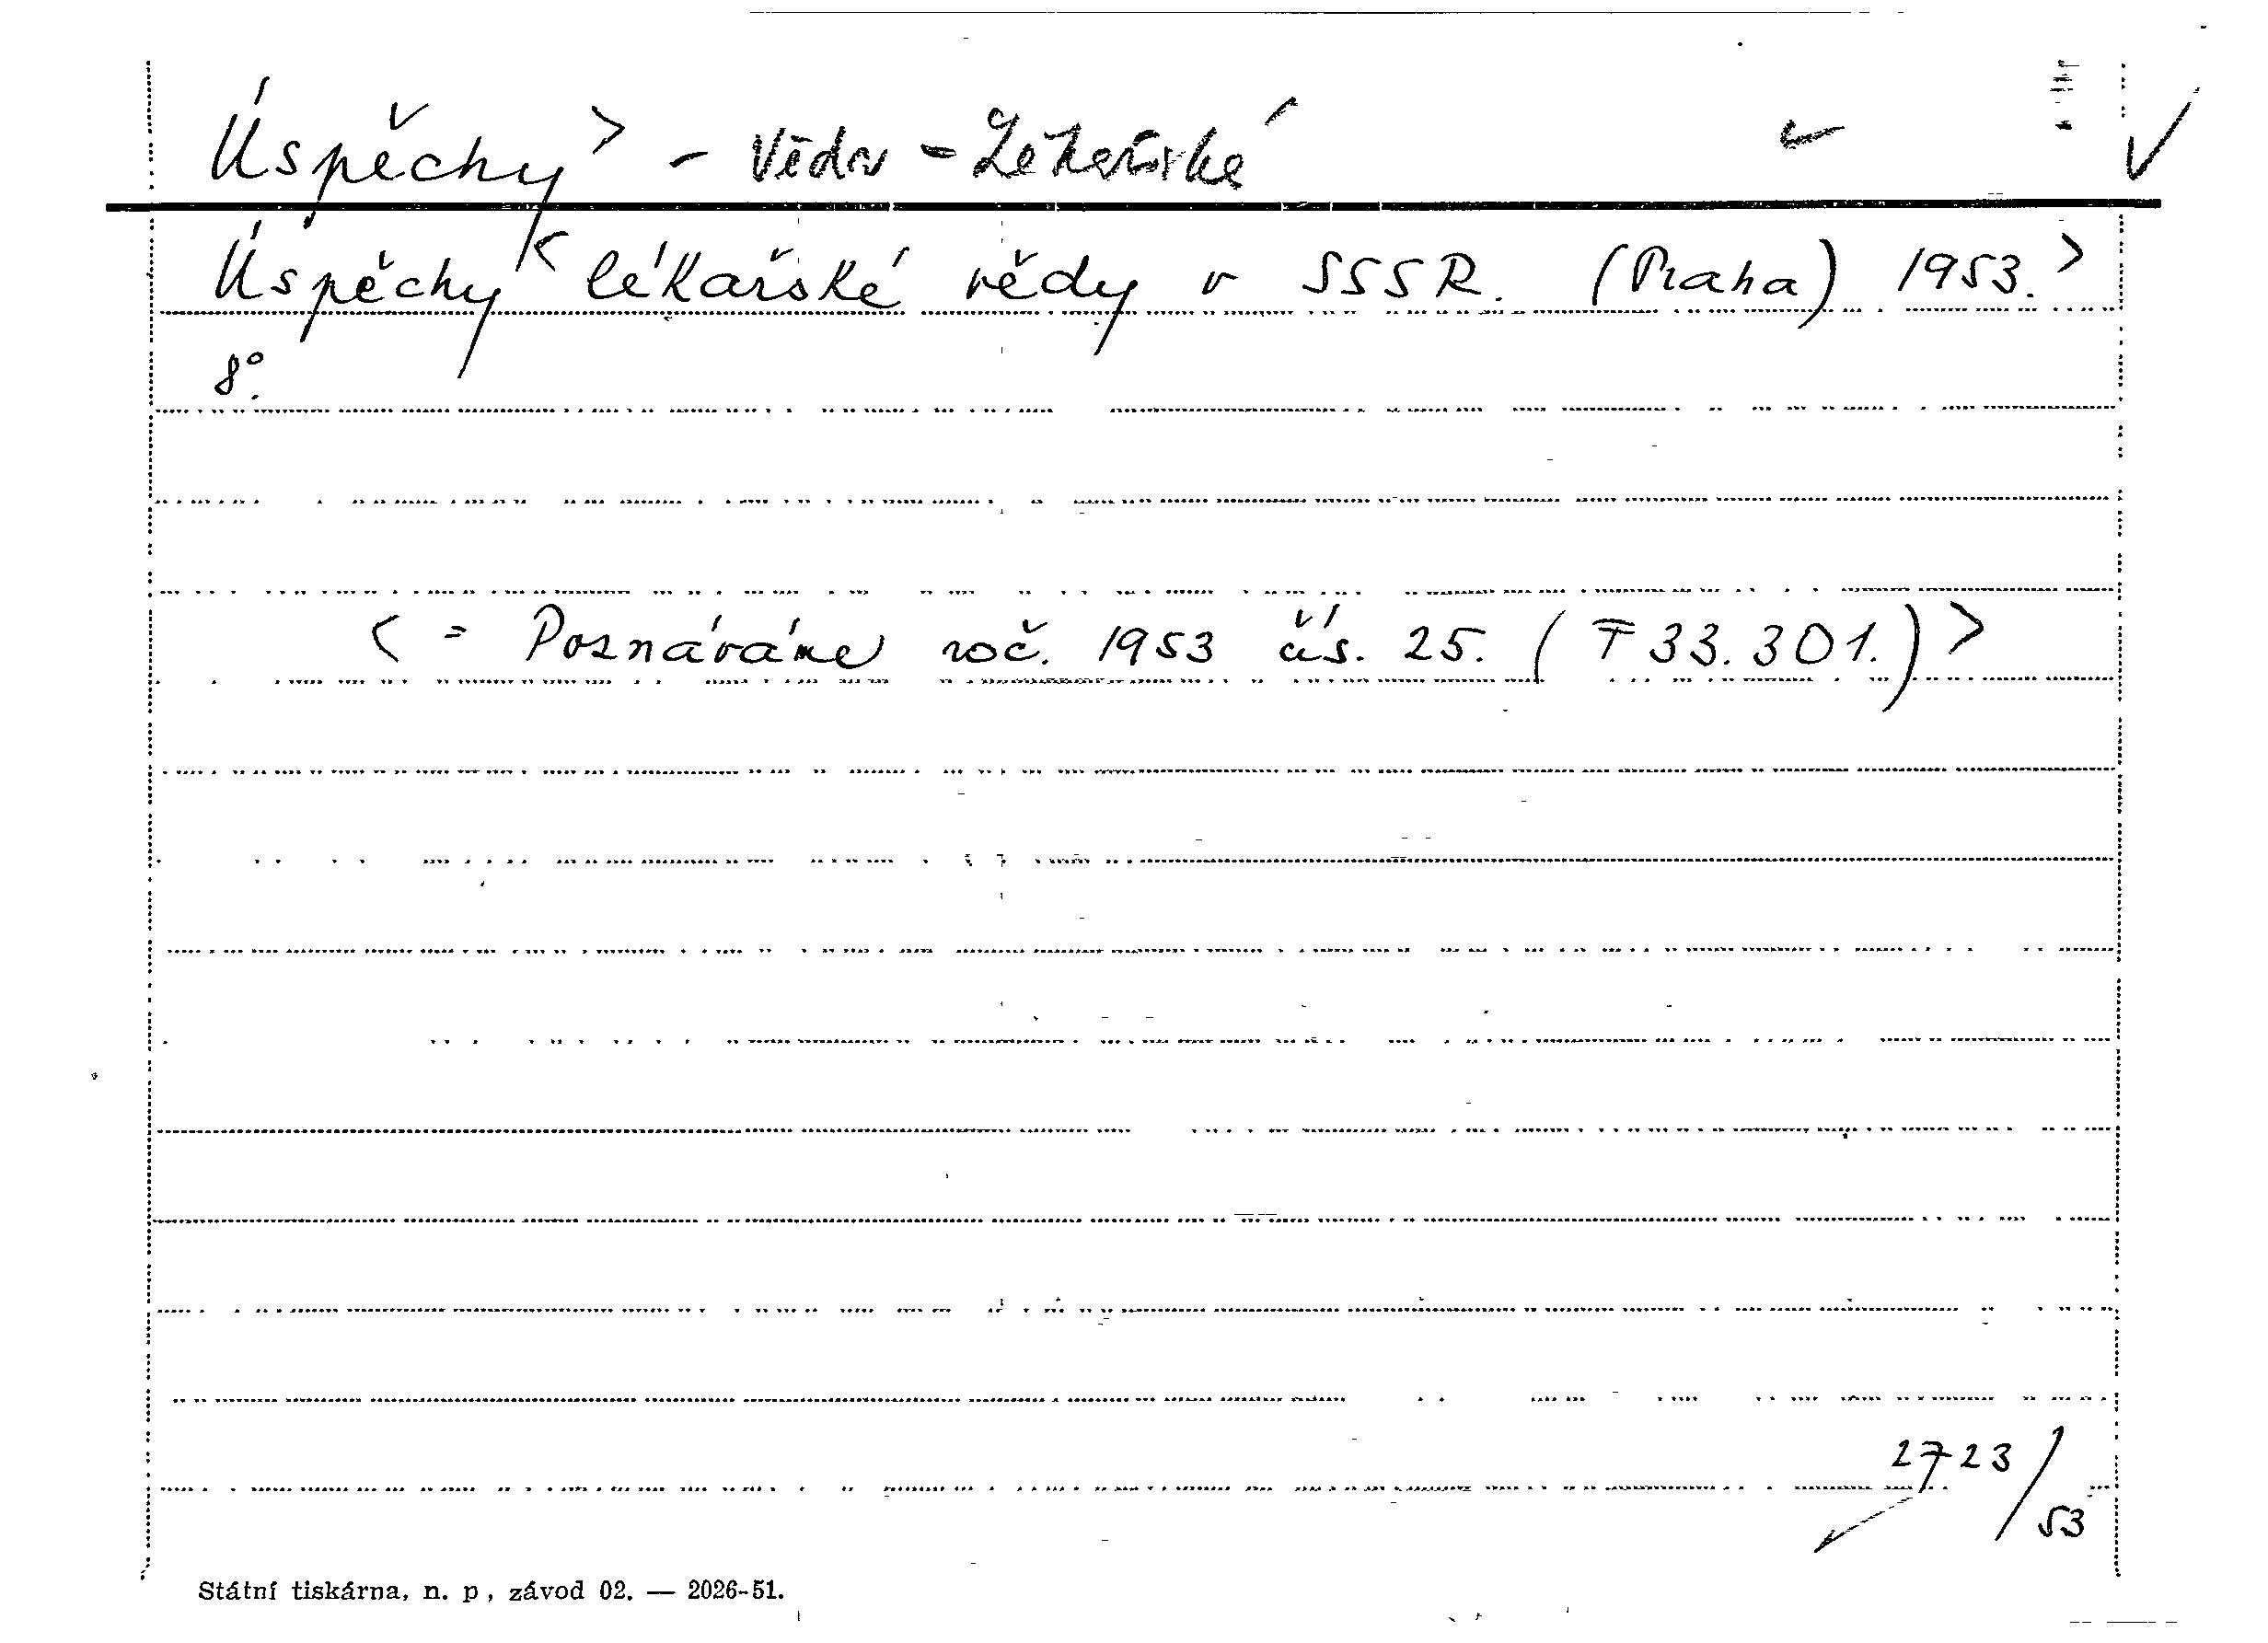 Úspěchy> - Věda - Lékařská
Úspěchy < lékařské vědy v SSSR. (Praha) 1953.>
8°.
< = Poznáváme roč. 1953 čís. 25. (T 33.301.) >
2723/53
Státní tiskárna, n. p., závod 02. — 2026-51.